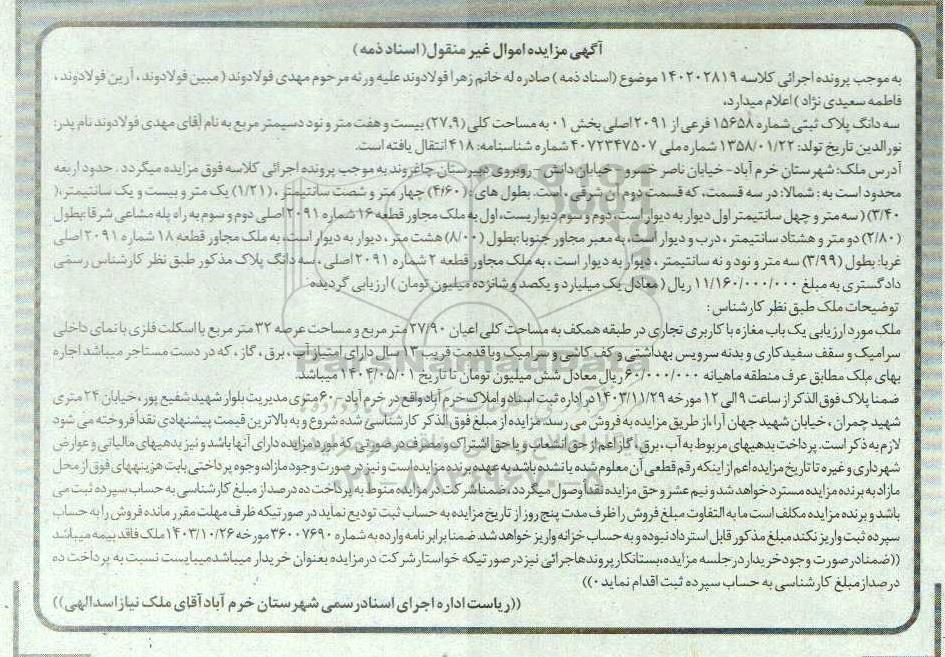 آگهی مزایده اموال غیر منقول( اسناد ذمه )
به موجب پرونده اجرائی کلاسه ۱۴۰۲۰۲۸۱۹ موضوع (اسناد ذمه ) صادره له خانم زهرا فولادوند علیه ورثه مرحوم مهدی فولادوند ( مبین فولادوند ، آرین فولادوند ،
فاطمه سعیدی نژاد ) اعلام میدارد،
سه دانگ پلاک ثبتی شماره ۱۵۶۵۸ فرعی از ۲۰۹۱ اصلی بخش ۰۱ به مساحت کلی (۲۷,۹) بیست و هفت متر و نود دسیمتر مربع به نام آقای مهدی فولادوند نام پدر:
نورالدین تاریخ تولد: ۱۳۵۸/۰۱/۲۲ شماره ملی ۴۰۷۲۳۴۷۵۰۷ شماره شناسنامه: ۴۱۸ انتقال یافته است.
آدرس ملک: شهرستان خرم آباد - خیابان ناصر خسرو - خیابان دانش - روبروی دبیرستان چاغروند به موجب پرونده اجرائی کلاسه فوق مزایده میگردد . حدود اربعه
محدود است به : شمالا: در سه قسمت، که قسمت دوم آن شرقی ، است. بطول های : (۴/۶۰) چهار متر و شصت سانتیمتر ، (۱/۲۱) یک متر و بیست و یک سانتیمتر،(
۳/۴۰) ( سه متر و چهل سانتیمتر اول دیوار به دیوار است، دوم و سوم دیواریست، اول به ملک مجاور قطعه ۱۶ شماره ۲۰۹۱ اصلی دوم و سوم به راه پله مشاعی شرقا:بطول
(۲/۸۰) دو متر و هشتاد سانتیمتر ، درب و دیوار است، به معبر مجاور جنوبا :بطول (۸/۰۰) هشت متر ، دیوار به دیوار است، به ملک مجاور قطعه ۱۸ شماره ۲۰۹۱ اصلی
غربا: بطول (۳/۹۹) سه متر و نود و نه سانتیمتر ، دیوار به دیوار است ، به ملک مجاور قطعه ۲ شماره ۲۰۹۱ اصلی ، سه دانگ پلاک مذکور طبق نظر کارشناس رسمی
دادگستری به مبلغ ۱۱/۱۶۰/۰۰۰/۰۰۰ ریال ( معادل یک میلیارد و یکصد و شانزده میلیون تومان ) ارزیابی گردیده
توضیحات ملک طبق نظر کارشناس :
ملک مورد ارزیابی یک باب مغازه با کاربری تجاری در طبقه همکف به مساحت کلی اعیان ۲۷/۹۰ متر مربع و مساحت عرصه ۳۲ متر مربع با اسکلت فلزی با نمای داخلی
سرامیک و سقف سفیدکاری و بدنه سرویس بهداشتی و کف کاشی و سرامیک وبا قدمت قریب ۱۳ سال دارای امتیاز آب ، برق ، گاز ، که در دست مستاجر میباشد اجاره
بهای ملک مطابق عرف منطقه ماهیانه ۶۰/۰۰۰/۰۰۰ ریال معادل شش میلیون تومان تا تاریخ ۱۴۰۴/۰۵/۰۱ میباشد.
ضمنا پلاک فوق الذکر از ساعت ۹ الی ۱۲ مورخه ۱۴۰۳/۱۱/۲۹ در اداره ثبت اسناد و املاک خرم آباد واقع در خرم آباد - ۶۰ متری مدیریت بلوار شهید شفیع پور ، خیابان ۲۴ متری
شهید چمران ، خیابان شهید جهان آرا ،از طریق مزایده به فروش می رسد. مزایده از مبلغ فوق الذکر کارشناسی شده شروع و به بالاترین قیمت پیشنهادی نقدا فروخته می شود
لازم به ذکر است. پرداخت بدهیهای مربوط به آب ، برق ، گاز اعم از حق انشعاب و یا حق اشتراک و مصرف در صورتی که مورد مزایده دارای آنها باشد و نیز بدهیهای مالیاتی و عوارض
شهرداری و غیره تا تاریخ مزایده اعم از اینکه رقم قطعی آن معلوم شده یا نشده باشد به عهده برنده مزایده است و نیز در صورت وجود مازاد، وجوه پرداختی بابت هزینههای فوق از محل
مازاد به برنده مزایده مسترد خواهد شد و نیم عشر و حق مزایده نقدا وصول میگردد ، ضمنا شرکت در مزایده منوط به پرداخت ده درصد از مبلغ کارشناسی به حساب سپرده ثبت می
باشد و برنده مزایده مکلف است ما به التفاوت مبلغ فروش را ظرف مدت پنج روز از تاریخ مزایده به حساب ثبت تودیع نماید در صورتیکه ظرف مهلت مقرر مانده فروش را به حساب
سپرده ثبت واریز نکند مبلغ مذکور قابل استرداد نبوده و به حساب خزانه واریز خواهد شد. ضمنا برابر نامه وارده به شماره ۳۶۰۰۷۶۹۰ مورخه ۱۴۰۳/۱۰/۲۶ ملک فاقد بیمه میباشد
((ضمنا در صورت وجود خریدار در جلسه مزایده،بستانکار پروندهاجرائی نیز در صورتیکه خواستار شرکت در مزایده بعنوان خریدار میباشد میبایست نسبت به پرداخت ده
درصد از مبلغ کارشناسی به حساب سپرده ثبت اقدام نماید ۰ ))
((ریاست اداره اجرای اسناد رسمی شهرستان خرم آباد آقای ملک نیاز اسدالهی))
ParsNamadData
۰۲۱-۸۸۳۴۹۶۷۰-۵